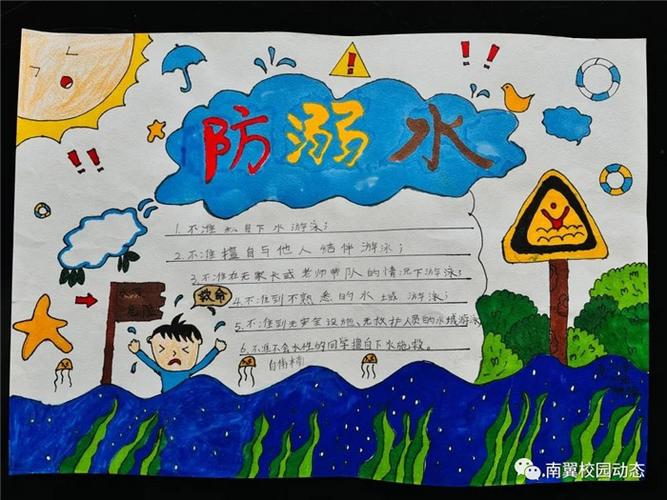 防溺水
1.不准私自下水游泳；
2.不准擅自与他人结伴游泳；
3.不准在无家长或老师带队的情况下游泳；
救命
4.不准到不熟悉的水域游泳；
5.不准到无安全设施、无救护人员的水域游泳
6.不准不会水性的同学擅自下水施救。
南翼校园动态